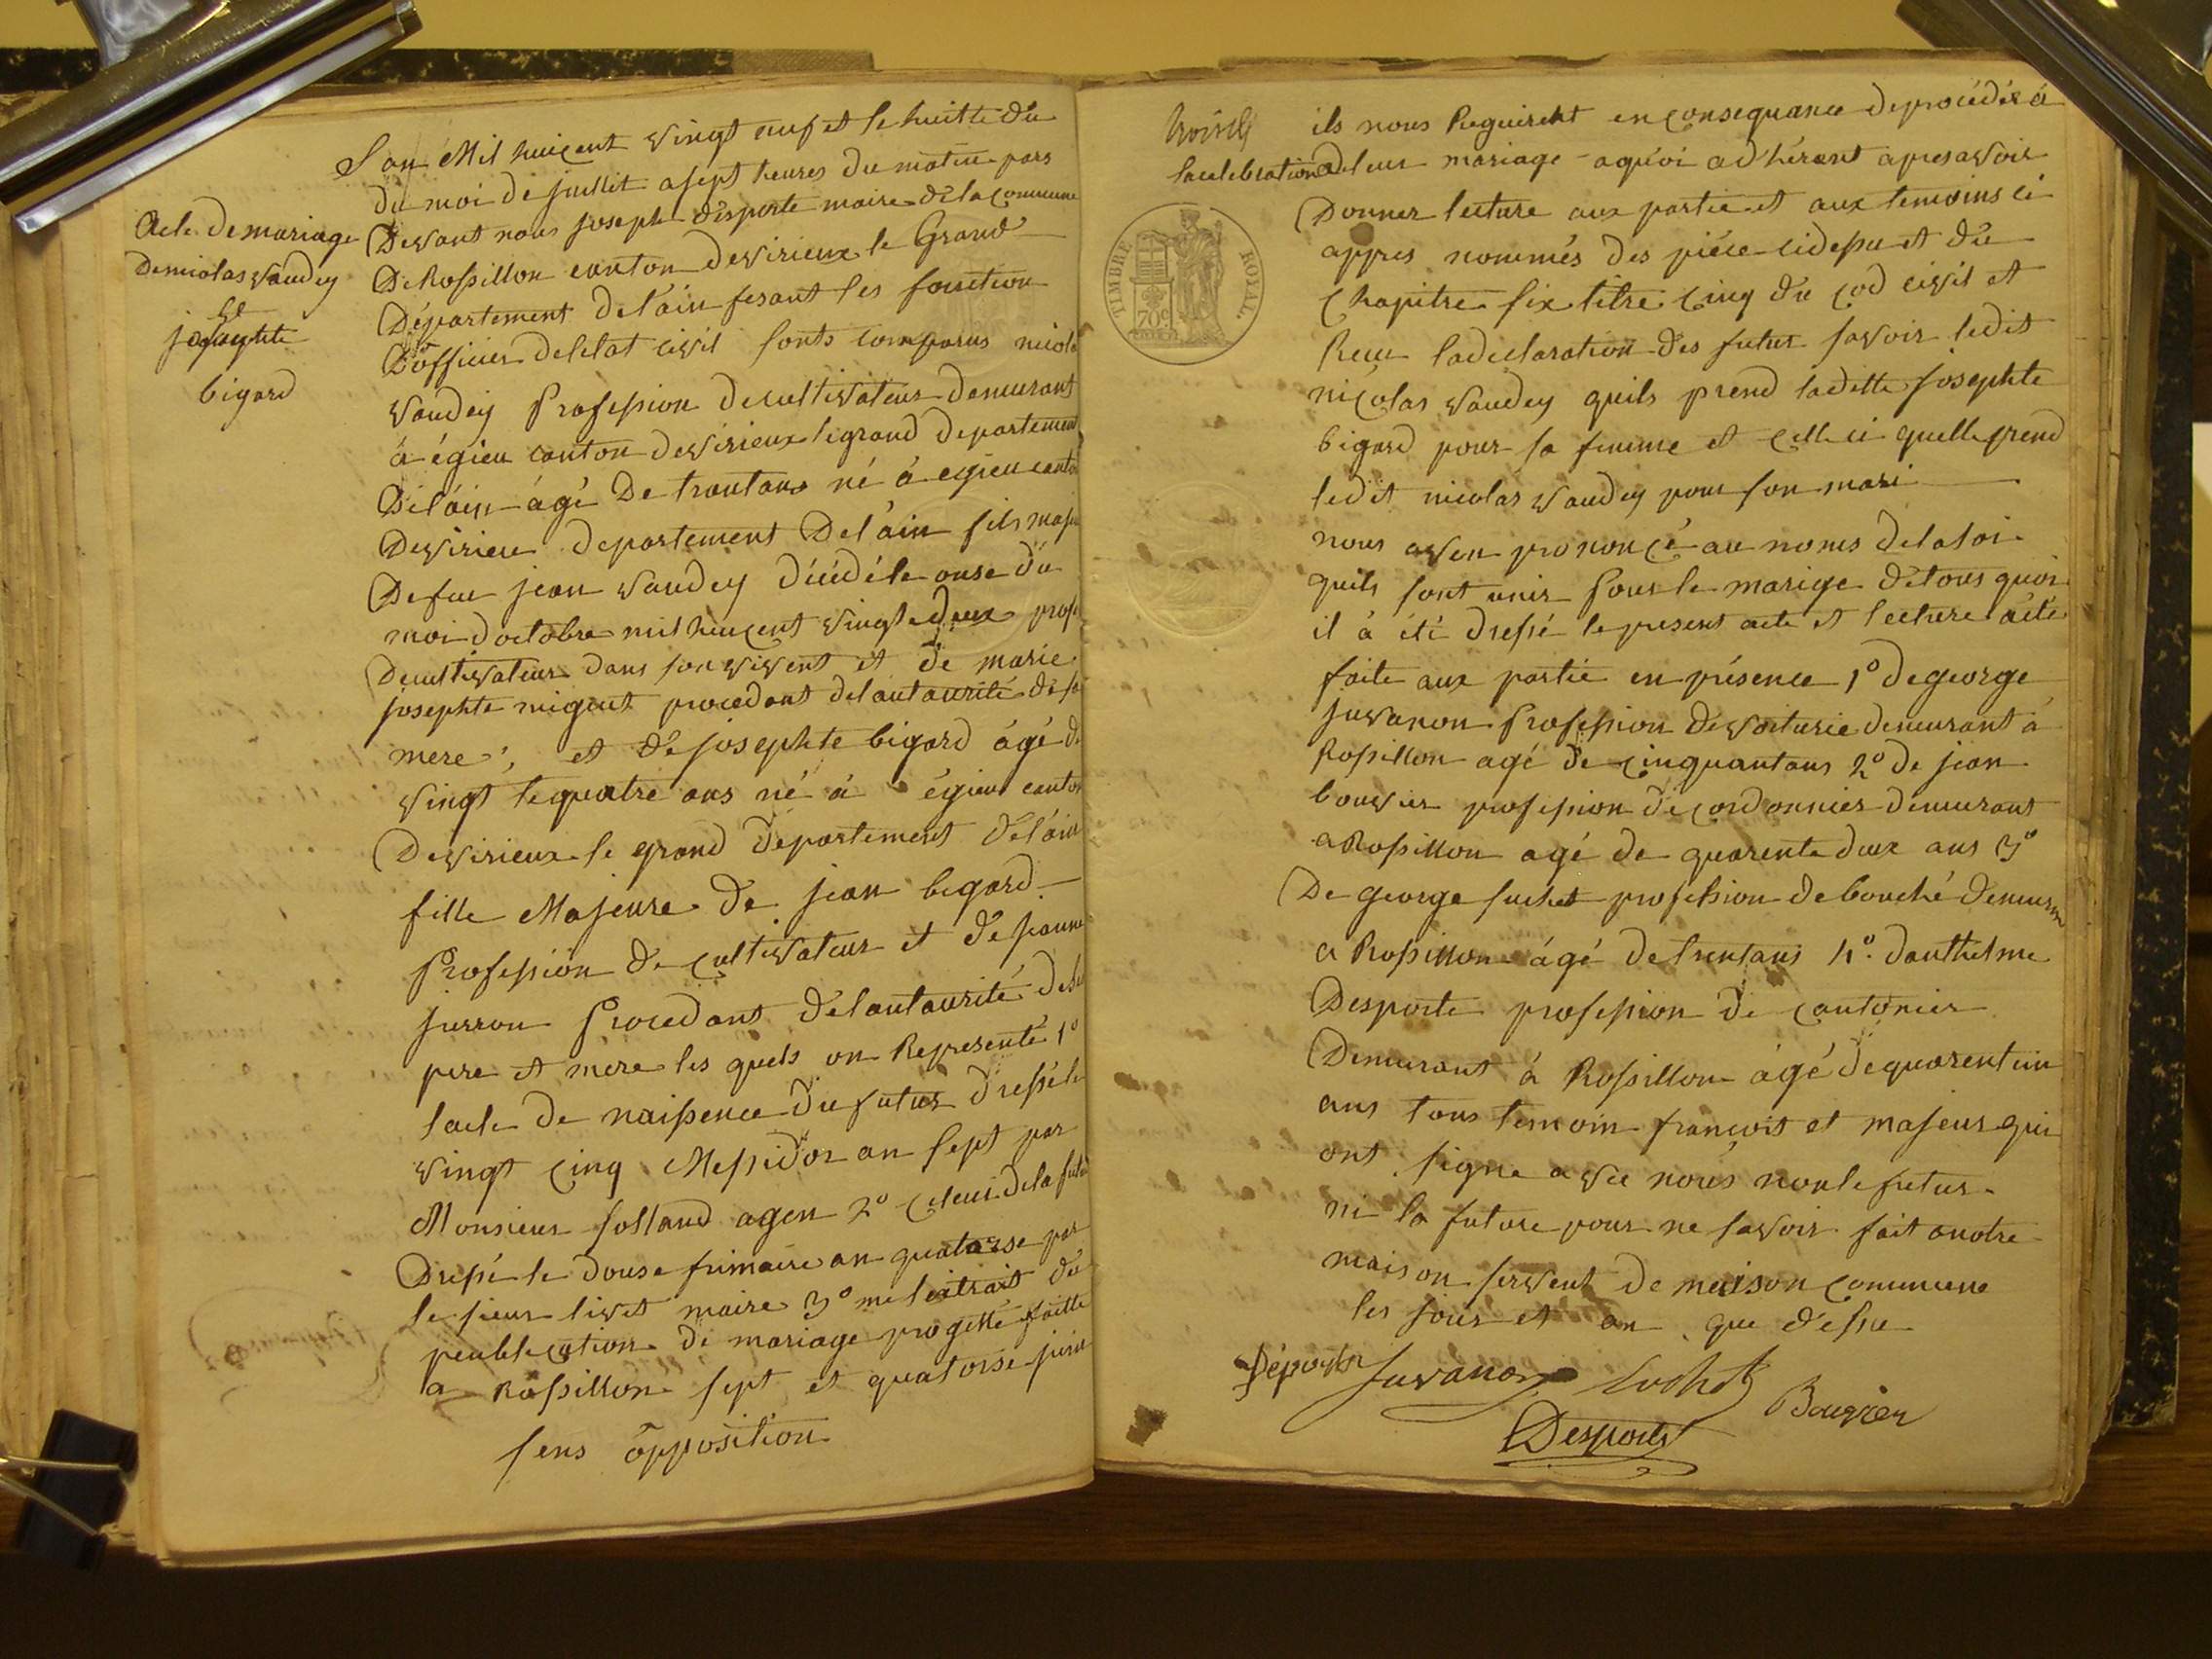 Acte de mariage
De nicolas vaudey
et
josephte
bigard
L'an Mil huicent vingt neuf et le huitte du
du moi de juillet a sept heures du matin pars
Devant nous joseph desporte maire de la commune
De Rossillon canton de virieux le Grand
Département de l'ain fesant les fonction
D'officier de letat civil sonts comparus nicola
vaudey Profession de cultivateur demeurant
à égieu canton de virieux le grand departement
De l'ain agé De trantans né à egieu canto
De virieu departement De l'ain fils maje
De feu jean vaudey décédé le onse du
moi d'octobre mil huicent vingt deux profe
De cultivateur dans son vivent et de marie
josephte migeut procedant de lautaurité de sa
mere; et de josephte bigard agé de
vingt tequatre ans né à égieu canton
De virieux le grand departement de l'ain
fille Majeure de jean bigard
Profession de cultivateur et de jeanne
jurron Procedant de lautaurité de se
pere et mère les quels on Representé 1º
lacte de naissence du futur dressé le
vingt cinq Messidor an sept par
Monsieur folland agen 2º celeui de la futu
Dressé le douse frimaire an quatorse par
le sieur livet maire 3º me l'extrait du
peublication de mariage progetté faitte
a Rossillon sept et quatorse juin
sens opposition
la celebration
ils nous Requirent en consequance de procédér à
de leur mariage aquoi adhérant apres avoir
Donner lecture aux partie et aux temoins ci
appres nommés des piéce cidessu et du
Chapitre six titre cinq du cod civil et
Recu la declaration des futur savoir ledit
nicolas vaudey quils prend ladette josephte
bigard pour sa femme et celle ci quelle prend
ledit nicolas vaudey pour son mari
nous aven prononcé au noms de la loi
quils sont unis pour le marige de tous quoi
il à été dressé le present acte et lecture a été
faite aux partie en présence 1º de george
juvanon Profession de voiturie demeurant à
Rossillon agé de cinquantans 2º de jean
bouvier profession de cordonnier demeurant
a Rossillon agé de quarente deux ans 3º
De george suchet profession de bouché demeuran
a Rossillon agé de trentans 4º. danthelme
Desporte profession de cantonier
Demeurant à Rossillon agé de quarent un
ans tous temoin francois et majeur qui
ont signe avec nous non le futur
ni la future pour ne savoir fait a notre
maison servent de maison commune
les jour et an que dessu
TIMBRE ROYAL.
70c
Déporte Juvanon Suchet Bouvier
Desporte